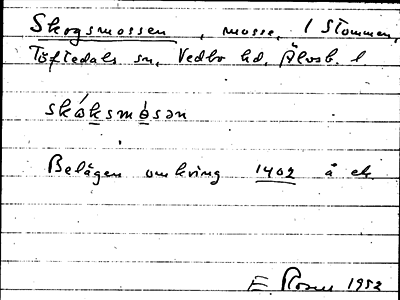 Skogsmossen, mosse, 1 Stommen,
Töftedals sn, Vedbo hd, Älvsb. l
skóksmòsən
Belägen omkring 1402 å ek.
E 1952